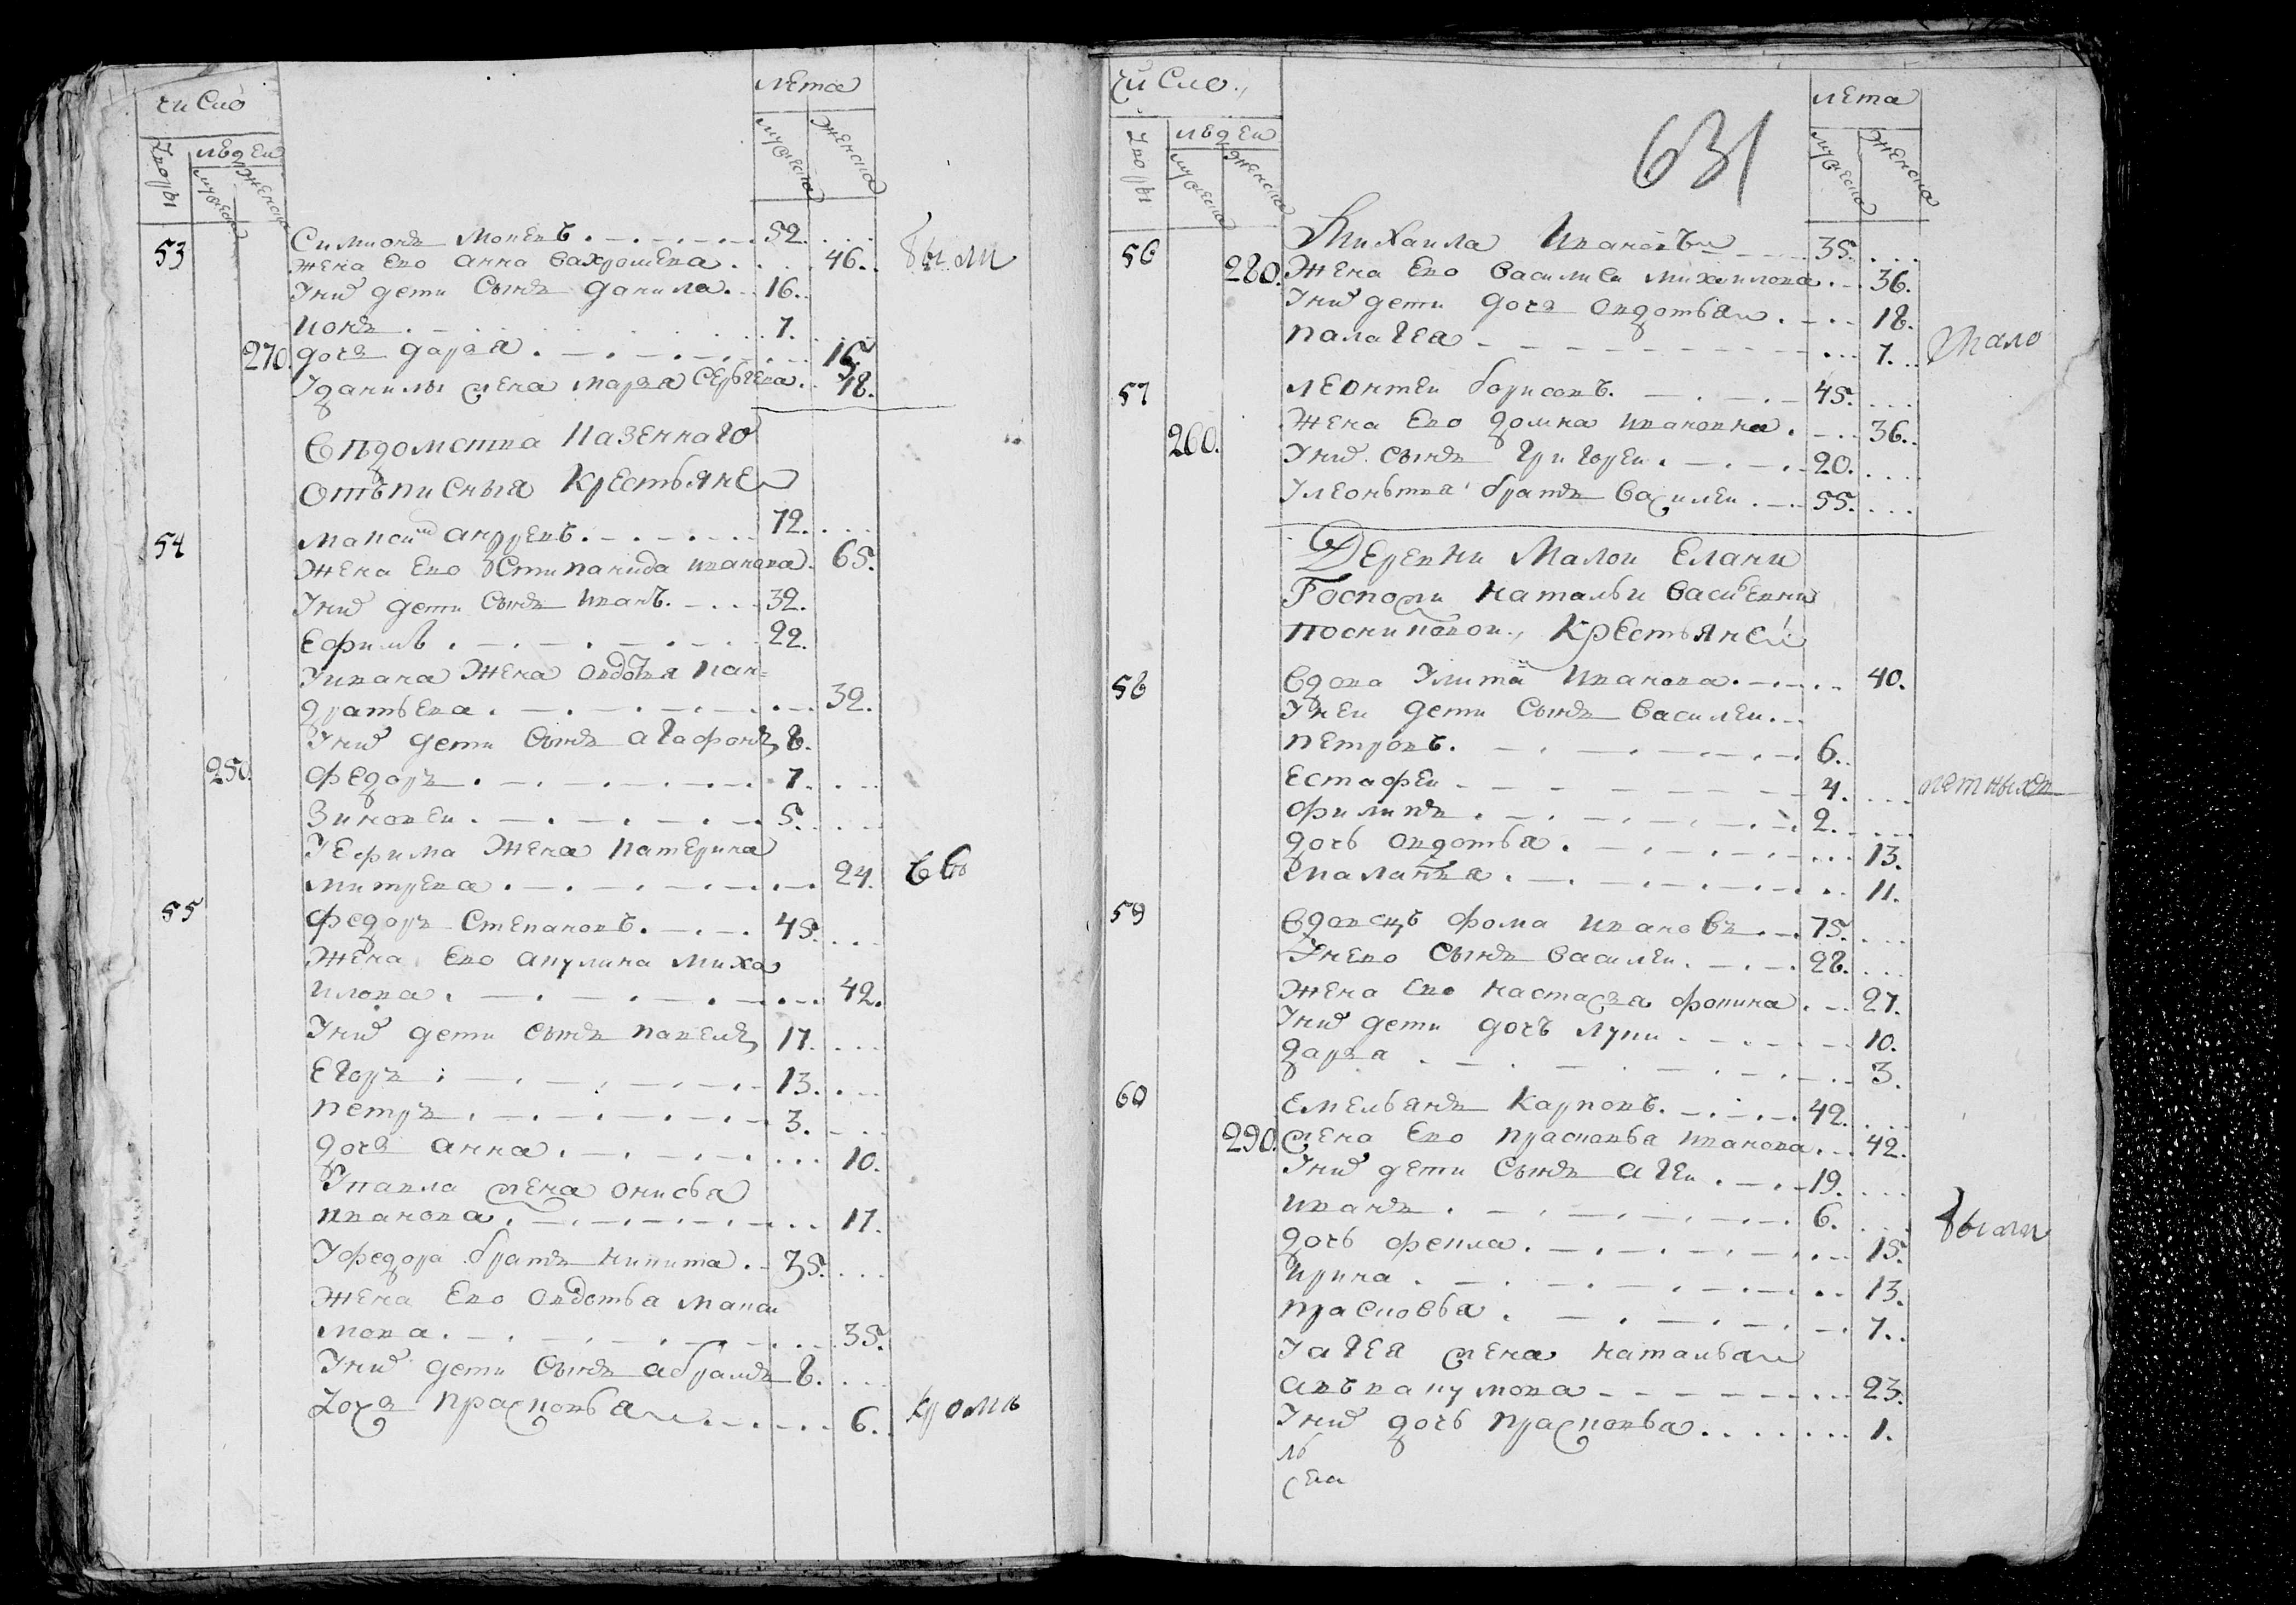 число
лета
дворы
людеи
мужеска
женска
мужеска
женска
53 Симионъ Мокеивъ 52.
жена Ево анна вахромеева 46. были
Уних дети Сынъ данила 16.
ионъ 7.
270. дочь дарья 15
Уданилы жена марья Сергеева 18.
Ведомства Казеннаго
Отъписныя Крестьяне
54 Максим андреевъ 72.
жена Ево Стипанида иванова 65.
Уних дети Сынъ иванъ 32.
Ефимъ 22.
Уивана жена овдотья кан=
дратьева 32.
Уних дети Сынъ агафонъ 8.
250. Федоръ 7.
Зиновеи 5.
УЕфима жена катерина
митрева 24.
55 Федоръ Степановъ 45.
жена Ево акулина миха
илова 42.
Уних дети Сынъ павелъ 17.
Егоръ 13.
петръ 3.
дочь анна 10.
Упавла жена онисья
иванова 17.
Уфедора братъ никита 35.
жена Ево овдотья макси
мова 35.
Уних дети Сынъ абрамъ 8.
дочь прасковья 6. кроме
число
631
лета
дворы
людеи
мужеска
женска
мужеска
женска
56 Михаила Ивановъ 35.
280. жена Ево василиса михаилова 36.
Уних дети дочь овдотья 18.
палагея 7. мало
57 леонтеи борисовъ 45.
жена Ево домна ивановна 36.
260. Уних сынъ григореи 20.
Улеонтья братъ василеи 55.
Деревни Малои Елани
Госпожи натальи васильевны
посниковои, Крестьянеи
58 вдова Улита иванова 40.
Унеи дети Сынъ василеи
петровъ 6.
Естафеи 4. летныхъ
филипъ 2.
дочь овдотья 13.
маланья 11.
59 вдовецъ фома ивановъ 75.
Унево Сынъ василеи 28.
жена Ево настасья фокина 27.
Уних дети дочь луки 10.
дарья 3.
60 Емельянъ карповъ 42.
290. жена Ево прасковья иванова 42.
Уних дети Сынъ агеи 19.
иванъ 6. были
дочь фекла 15.
ирина 13.
прасковья 7.
Уагея жена наталья
авъвакумова 23.
Уних дочь прасковья 1.